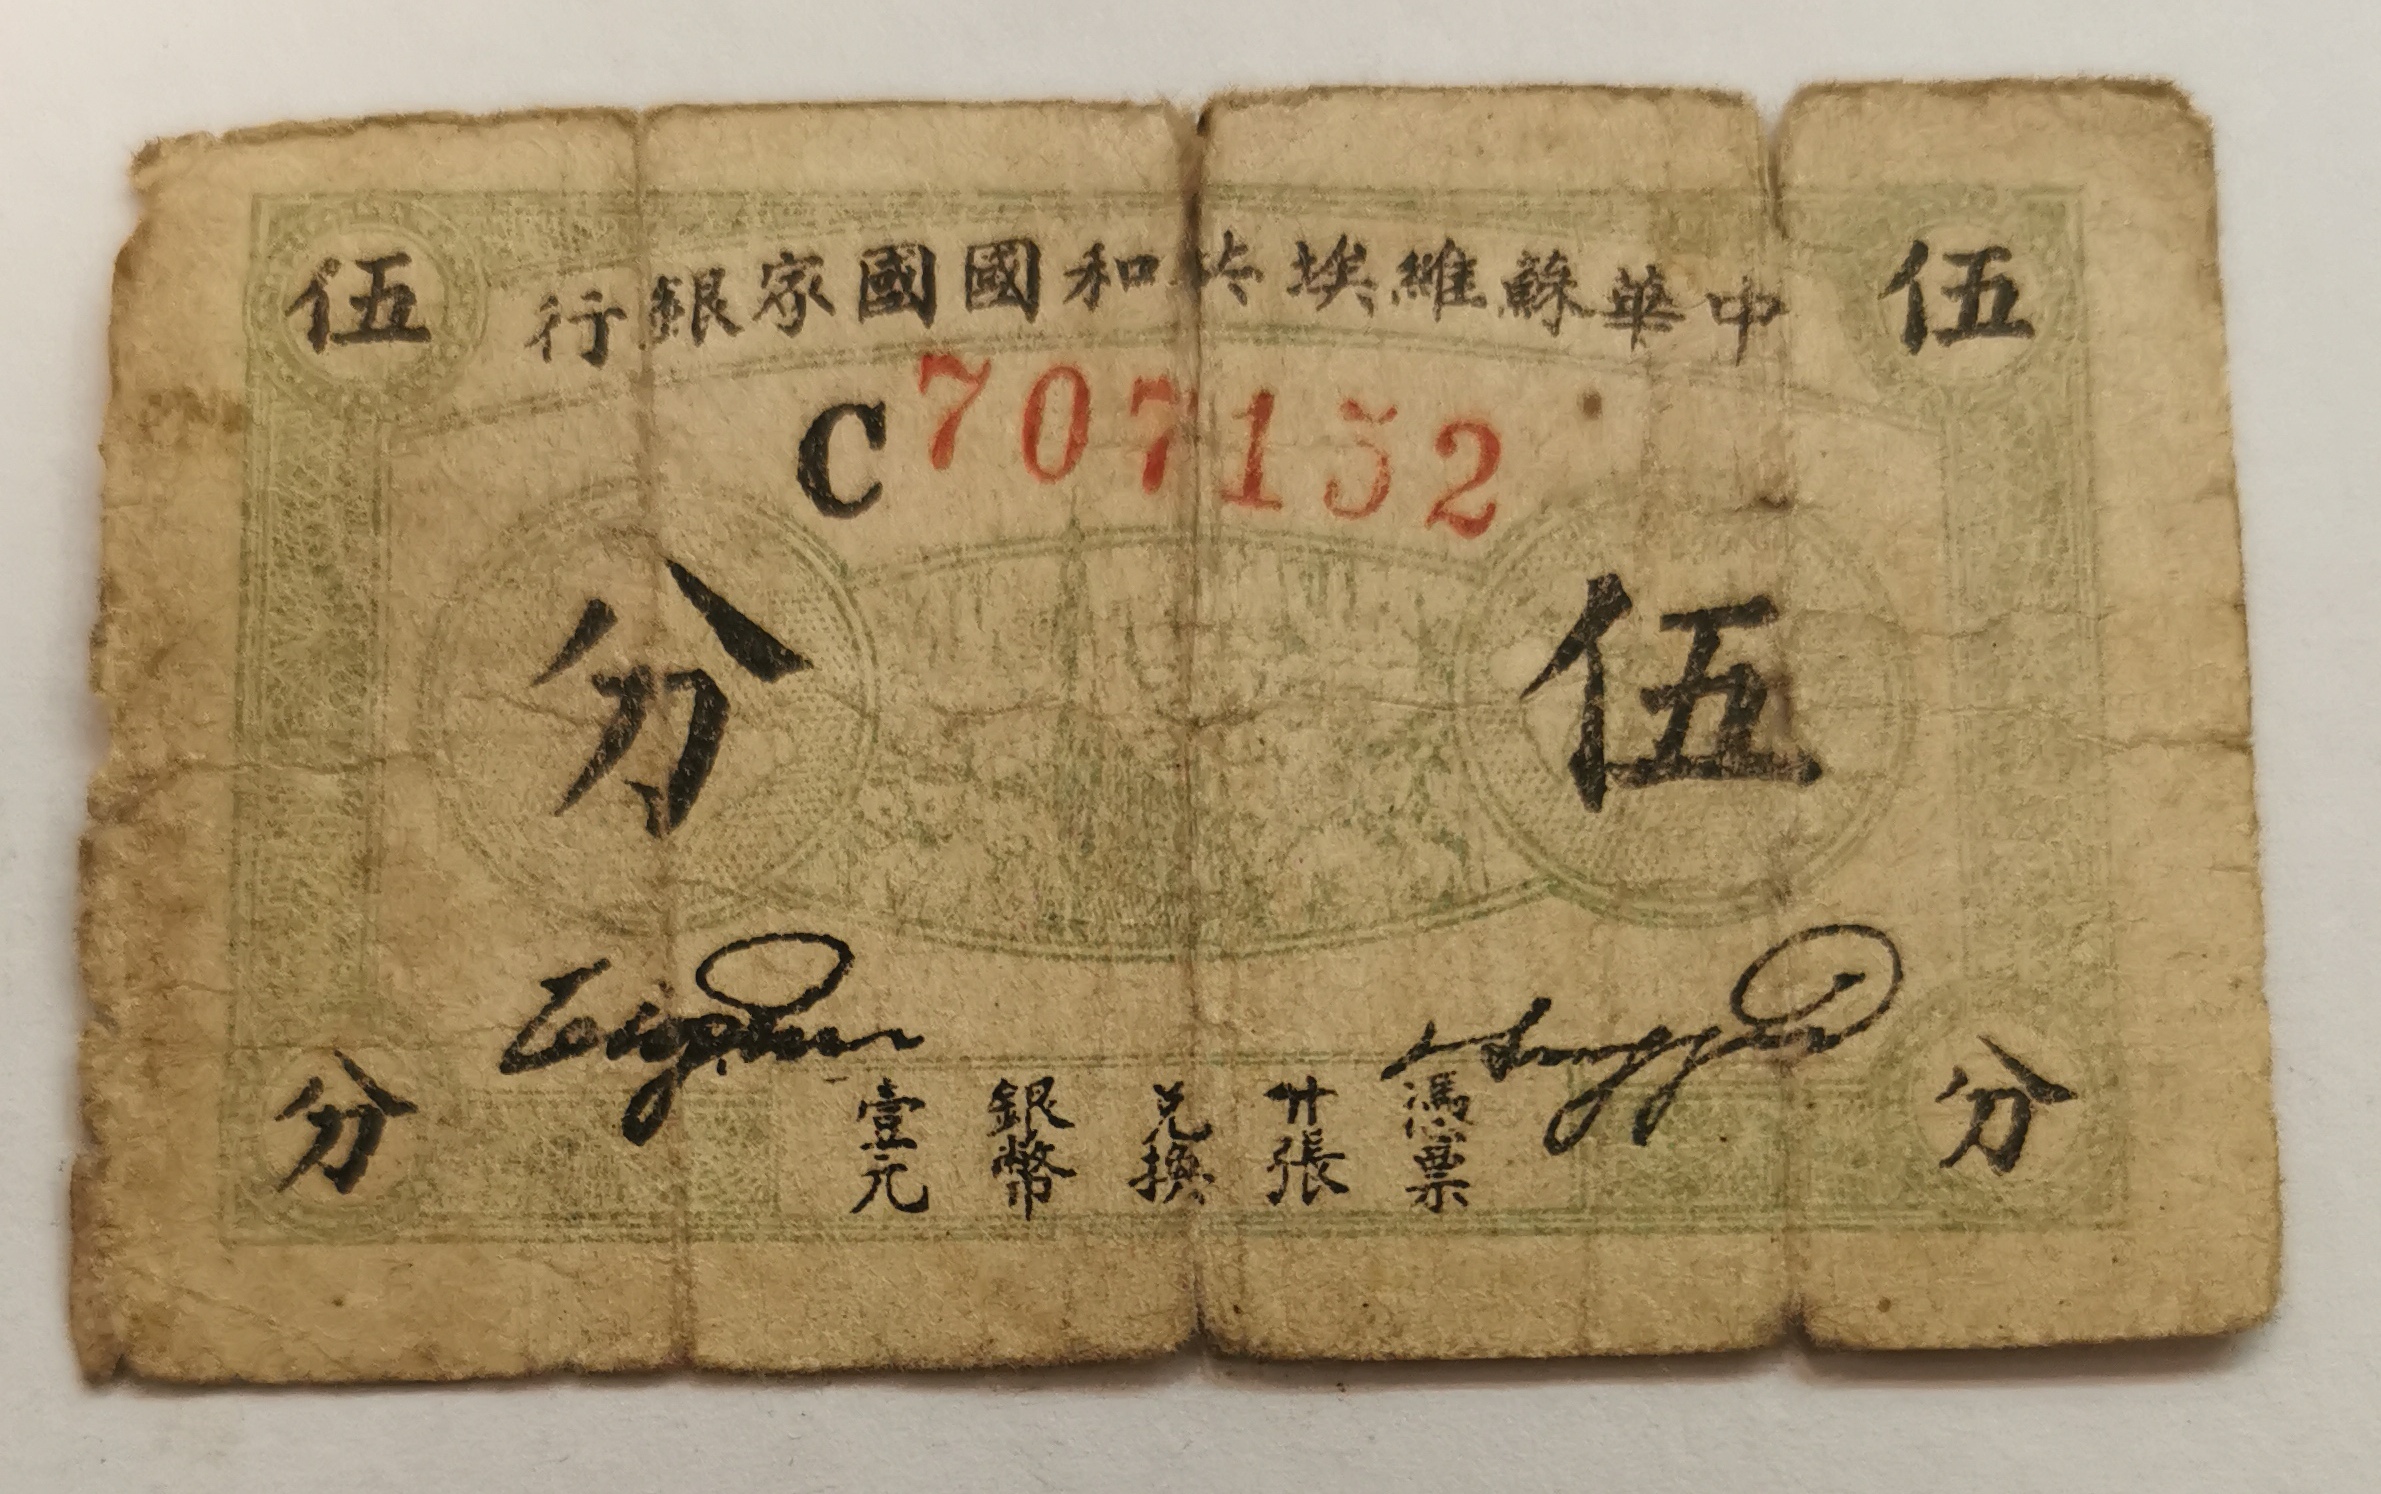 中華蘇維埃共和國國家銀行
伍 伍
C707152
伍分
憑票廿張兌換銀幣壹元
分 分